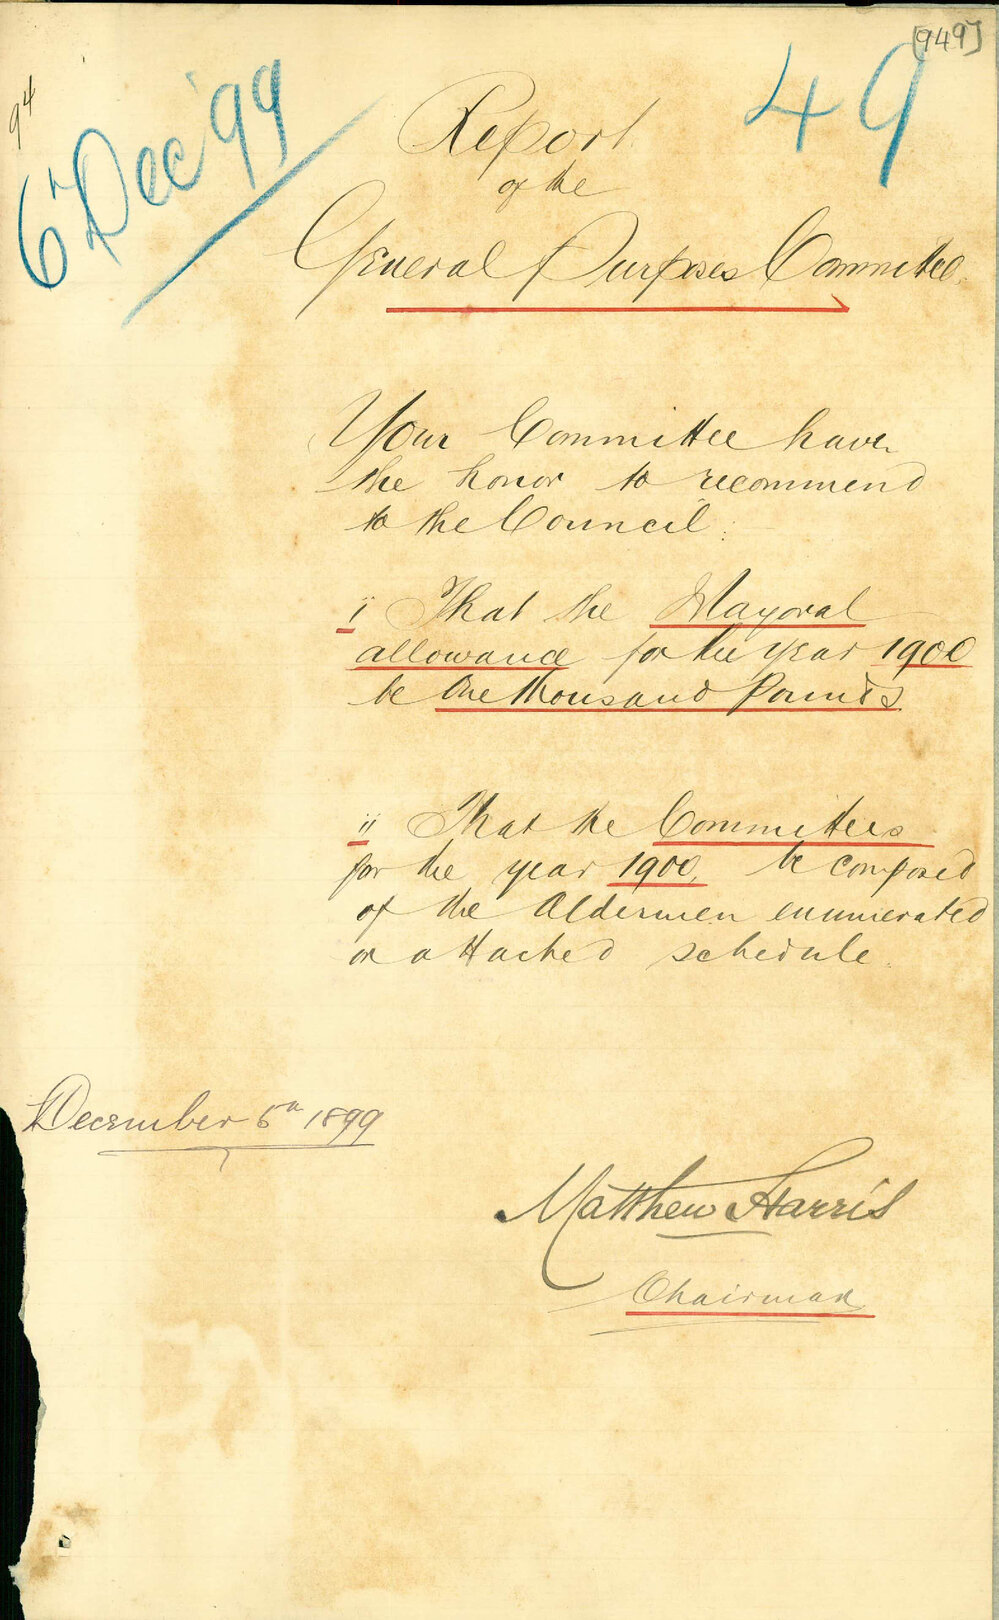 [949]
49
94
6th Dec '99
Report
of the
General Purposes Committee.
Your Committee have
the honor to recommend
to the Council:
i That the Mayoral
allowance for the year 1900
be One thousand Pounds
ii That the Committees
for the year 1900, be composed
of the Aldermen enumerated
on attached schedule.
December 5th 1899
Matthew Harris
Chairman